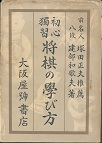 前名人 塚田正夫推薦
八段 建部和歌夫著
初心獨習 將棋の學び方
大阪屋號書店